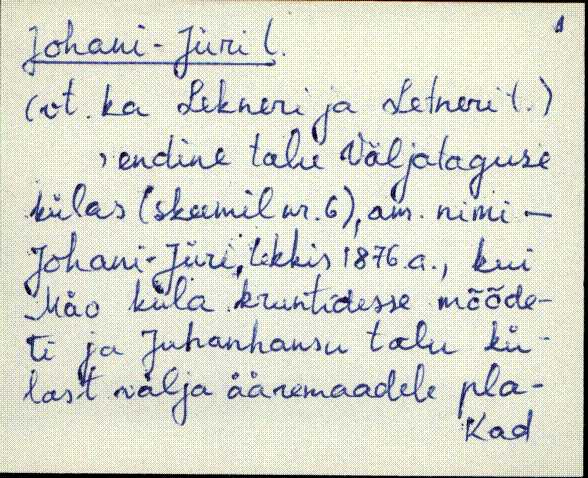 1
Johani-Jüri t.
(vt. ka Lekneri ja Letneri t.)
, endine talu Väljataguse
külas (skeemil nr. 6), am. nimi —
Johani-Jüri, tekkis 1876.a., kui
Mäo küla kruntidesse mõõde-
ti ja Juhanhansu talu kü-
last välja ääremaadele pla-
Kad